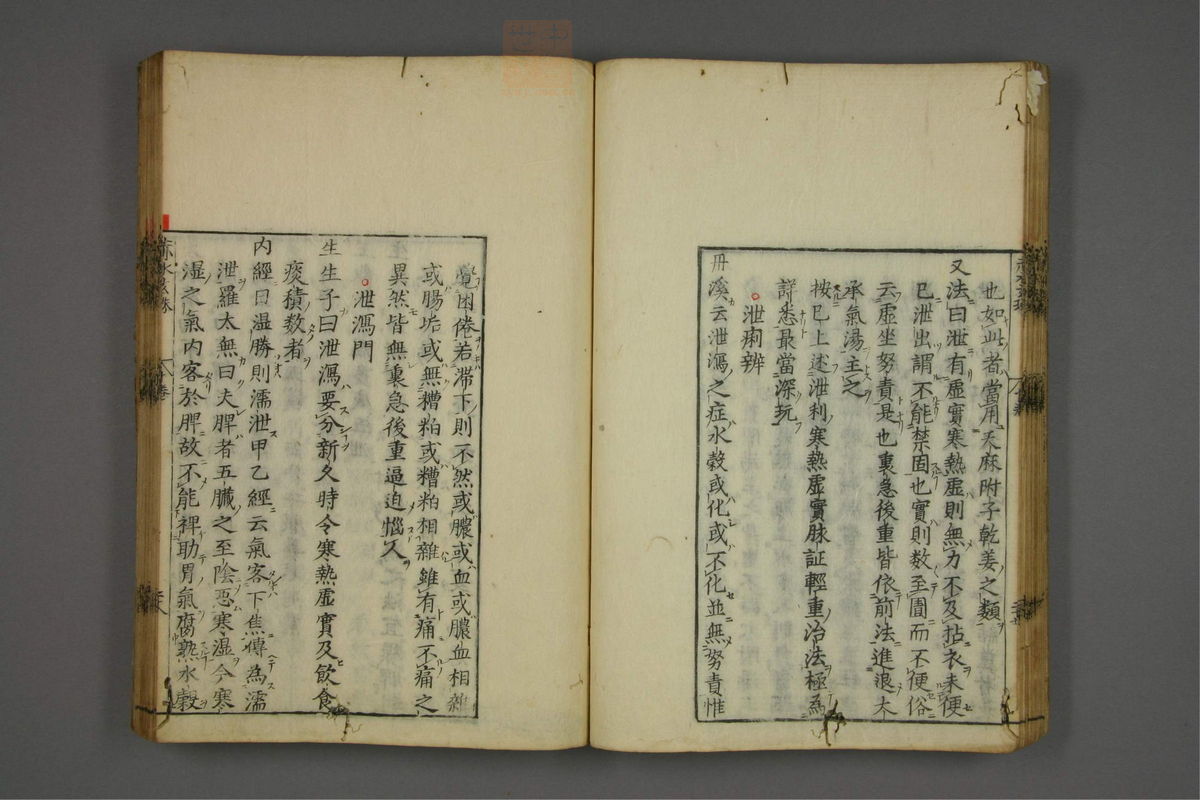 也如此者當用天麻附子乾姜之類
又法曰泄有虛實寒熱虛則無力不及拈衣未便
已泄出謂不能禁固也實則数至圊而不便俗
云虛坐努責是也裏急後重皆依前法進退大
承氣湯主之
按已上述泄利寒熱虛實脉証輕重治法極為
詳悉最當深玩
泄痢辨
丹溪云泄瀉之症水穀或化或不化並無努責惟
覺困倦若滞下則不然或膿或血或膿血相雜
或腸垢或無糟粕或糟粕相雜雖有痛不痛之
異然皆無裏急後重逼迫惱人
泄瀉門
生生子曰泄瀉要分新久時令寒熱虛實及飲食
痰積数者
内經曰湿勝則濡泄甲乙經云氣客下焦傳為濡
泄羅太無曰夫脾者五臓之至陰惡寒湿今寒
湿之氣内客於脾故不能裨助胃氣腐熟水穀